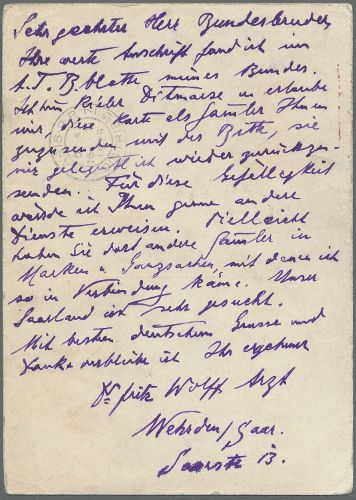 Sehr geehrter Herr Bundesbruder,
Ihre werte Anschrift fand ich im
A.T.B. blatte meines Bundes.
Ich bin Ditmarse u. erlaube
mir, diese Karte als Samler Ihnen
zuzusenden mit der Bitte, sie
mir gelegentlich wieder zurückzu-
senden. Für diese Gefälligkeit
würde ich Ihnen gerne andere
Dienste erweisen. Vielleicht
haben Sie dort andere Samler in
Marken u. Ganzsachen, mit denen ich
so in Verbindung käme. Unser
Saarland ist sehr gesucht.
Mit besten deutschem Grusse und
Danke verbleibe ich Ihr ergebener
Dr fritz Wolff Arzt
Wehrden/Saar.
Saarstr 13.